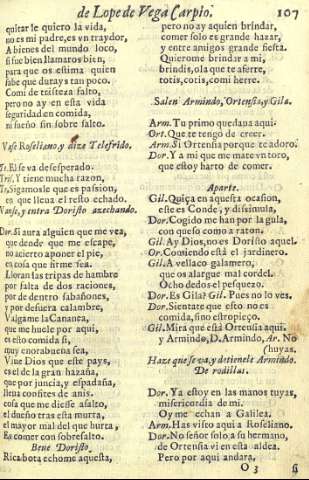 de Lope de Vega Carpio. 107
quitarle quiero la vida,
no es mi padre, es vn traydor,
A bienes del mundo loco,
si fue bien llamaros bien,
para que os estima quien
sabe que durays tan poco.
Comi de tristeza falto,
pero no ay en esta vida
seguridad en comida,
ni sueño sin sobre salto.
Vase Roseliano, y dize Telefrido.
Te. El se va desesperado.
Tri. Y tiene mucha razon,
Te. Sigamosle que es passion,
en que lleua el resto echado.
Vanse, y entra Doristo azechando.
Dor. Si aura alguien que me vea,
que desde que me escape,
no acierto a poner el pie,
en cosa que firme sea.
Lloran las tripas de hambre
por falta de dos raciones,
por de dentro sabañones,
y por defuera calambre,
Valgame la Cananea,
que me huele por aqui,
es esto comida si,
muy enorabuena sea,
Viue Dios que este pays,
es el de la gran hazaña,
que por juncia, y espadaña,
lleua confites de anis.
cosa que me diesse asalto,
el dueño tras esta murta,
el mayor mal del que hurta,
Es comer con sobresalto.
Beue Doristo.
Rica bota echome aquesta,
pero no ay aquien brindar,
comer solo es grande hazar,
y entre amigos grande fiesta.
Quierome brindar a mi,
brindis, ola que te aferre,
totis, cotis, comi herre.
Salen Armindo, Ortensia, y Gila.
Arm. Tu primo quedaua aqui.
Ort. Que te tengo de creer.
Arm. Si Ortensia porque te adoro.
Dor. Y a mi que me mate vn toro,
que estoy harto de comer.
Aparte.
Gil. Quiça en aquesta ocasion,
este es Conde, y dissimula,
Dor. Cogido me han por la gula,
con queso como a raton.
Gil. Ay Dios, no es Doristo aquel.
Or. Comiendo està el jardinero.
Gil. A vellaco galamero,
que os alargue mal cordel.
Ocho dedos el pesquezo.
Dor. Es Gila? Gil. Pues no lo ves.
Dor. Sientate que esto no es
comida, sino estropieço.
Gil. Mira que està Ortensia aqui.
y Armindo, D. Armindo, Ar. No
huyas.
Haze que se va, y detienele Armindo.
De rodillas.
Dor. Ya estoy en las manos tuyas,
misericordia de mi.
Oy me echan a Galilea.
Arm. Has visto aqui a Roseliano.
Dor. No señor solo a su hermano,
de Ortensia vi en esta aldea.
Pero por aqui andara,
O 3 si